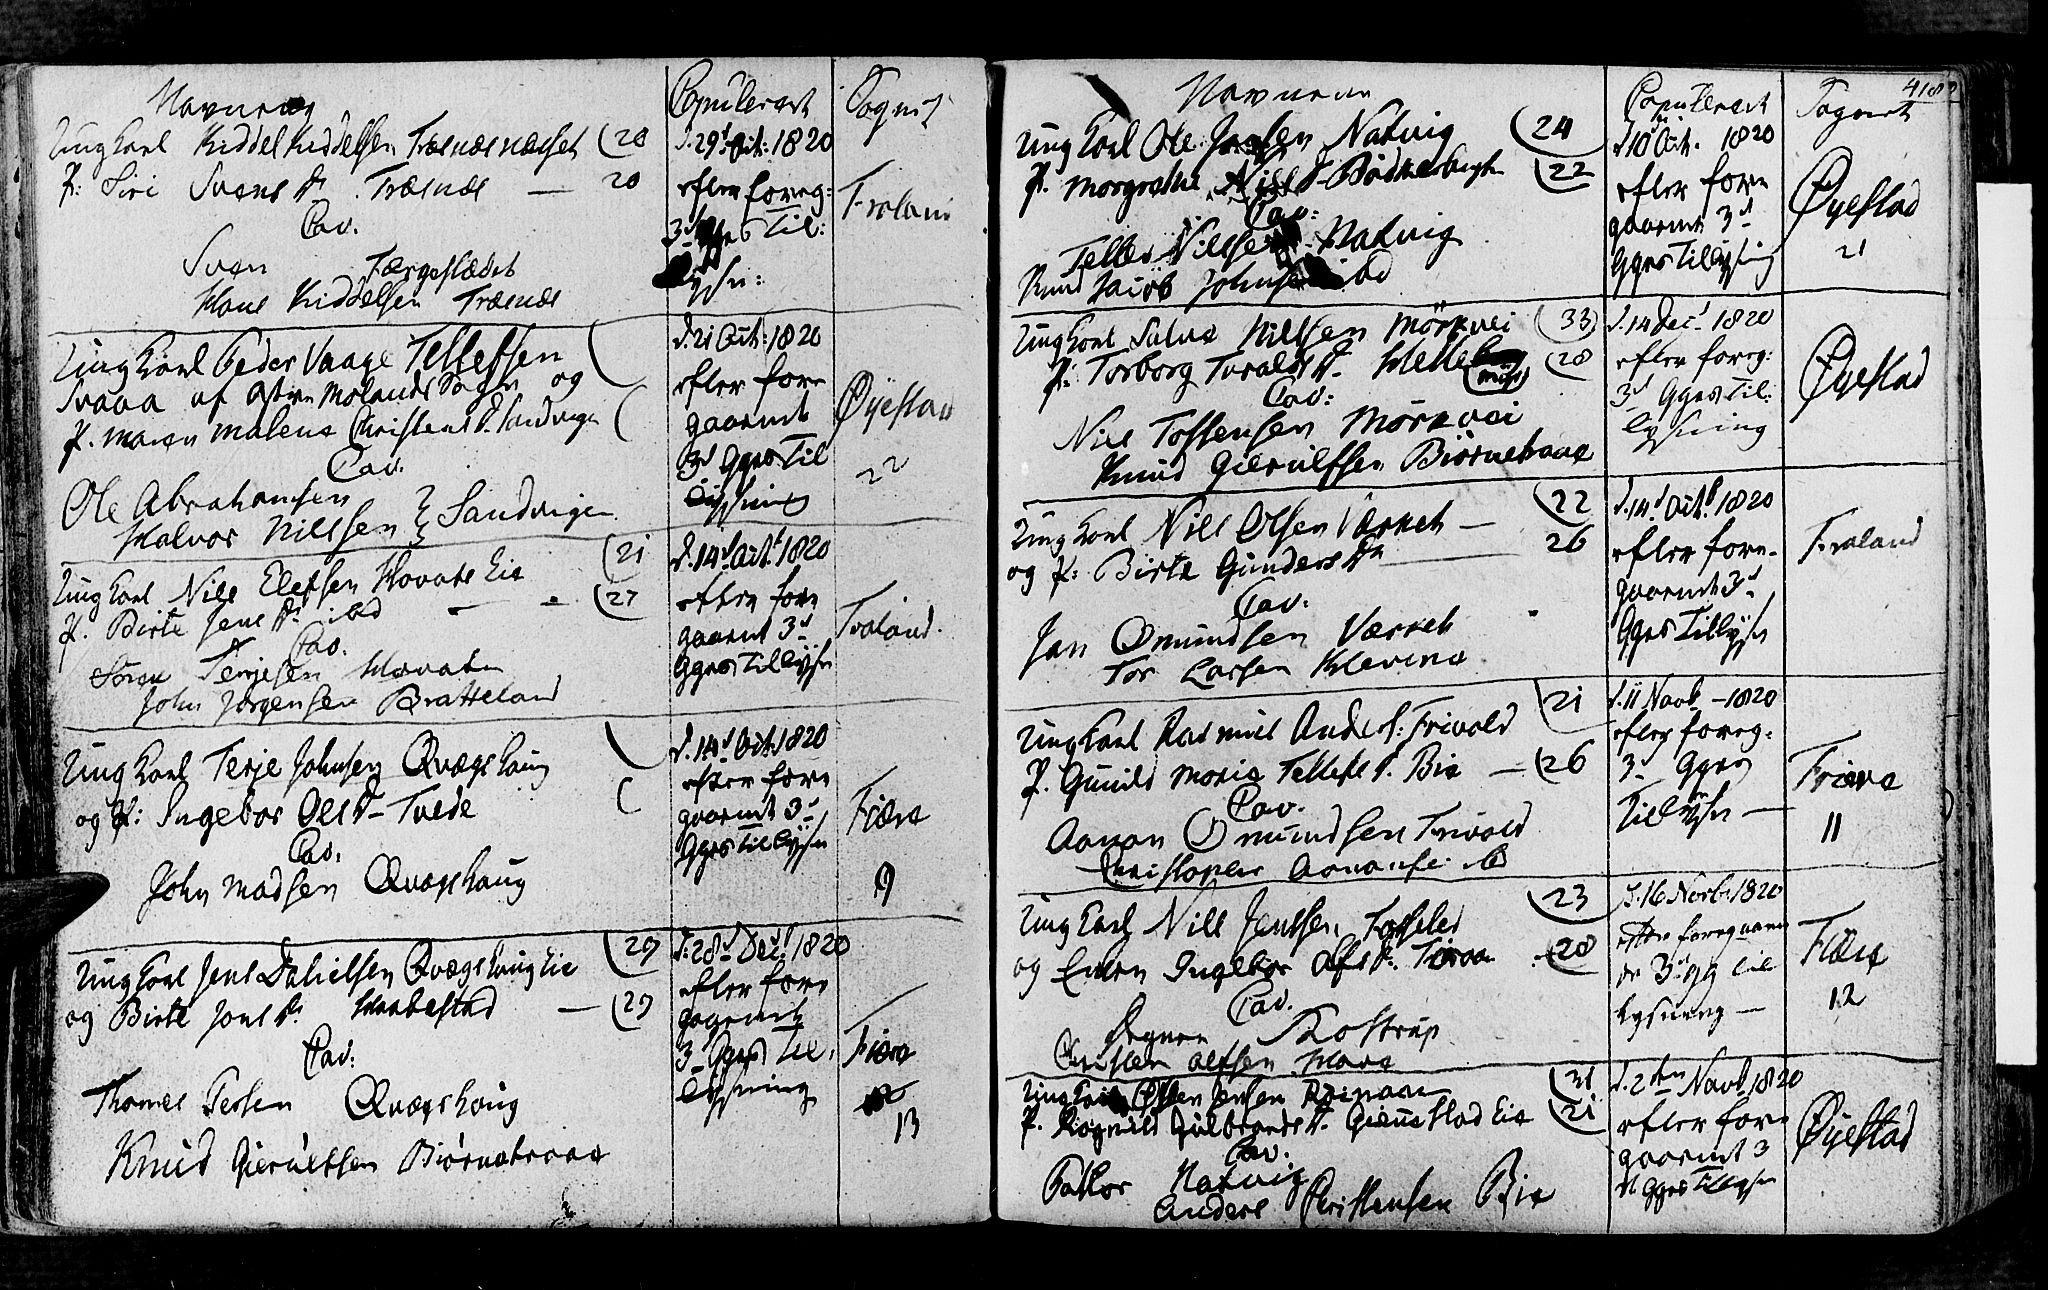 Navnene
Copuleret
Sognet
Ung Karl Kiddel Kiddelsen Træsnæs (28
P: Siri Svens D. Træsnæs — 20
Cav.
Sven Færgestædet
Hans Kiddelsen Træsnæs
d. 29d Oct: 1820
efter foreg:
3d Til:
lysn:
Froland
Ung Karl Peder Vaage Tellefsen (
Svaaa af Østre Molands Sogn og
P. Maren Malene Christens D. Sandvigen (
Cav.
Ole Abrahamsen
Halvor Nilssen } Sandvigen
d. 21 Oct: 1820
efter fore
gaaende
3d Gges Til
lysning
Øyestad
22
Ung Karl Nils Elefsen Hovats Eie (21
P. Birte Jens D. ibd — (27
Cav.
Søren Terjesen Hovaten
John Jørgensen Bratteland
d. 14d Oct. 1820
efter fore
gaaende 3d
Gges Tillysn
Froland.
Ung Karl Terje Johnsen Qvægshoug (
og P: Ingebor Ols D. Tvede (
Cav.
John Madsen Qvægshoug
d. 14d Oct. 1820
efter fore
gaaende 3d
Gges Tillysn
Fiære
9
Ung Karl Jens Danielsen Qvægshoug Eie (29
og Birte Jons D. — (29
Cav:
Thomes Qvægshoug
Knud Gierulfsen Biørnebraae
d. 28d Dec. 1820
efter fore
gaaende
3d Gges Til
lysning
Fiære
13
Navnene
Copuleret
Sognet
418
Ung Karl Ole Jensen Natvig (24
P. Margrethe Nils D. (22
Cav:
Tellef Nilssen Natvig
Jacob Johnsen ibd
d 10 Oct. 1820
efter fore
gaaende 3d
Gges Tillysning
Øyestad
21
Ung Karl Salve Nilssen Mörkvei (33)
P: Torborg Tvalds D. (28
Cav:
Nils Tossensen Mörkvei
Knud Gierulfsen Biørnebraae
d. 14 Dec. 1820
efter foreg:
3d Gges Til:
lysning
Øyestad
Ung Karl Nils Olsen Værket — (22
og P: Birte Gunders D. 26
Cav.
Jan Omundsen Værket
Tor Larsen Klevene
d. 14d Oct. 1820
efter fore-
gaaende 3d
Gges Tillysn
Froland
Ung Karl Rasmus Anders: Frivold (21
P. Gunild Marie Tellefs D. Bie — (26
Cav.
Aanon Omundsen Frivold
Christopher Aanonsen ibd
d. 11 Novb — 1820
efter foreg:
3d Gges
Tillysn —
Fiære
11
Ung Karl Nils Jenssen (23
og Enken Ingebor D. (28
Cav.
Kostrup
Christen Mara
d. 16 Novb. 1820
efter foregaaen
de 3d gg Til
lysning —
Fiære
12
Ung Karl Jensen (21
P. Ragnild Gulbrands D. Giernstad Eie (21
Cav.
Pastor Natvig
Anders Christensen Bie
d. 2den Novb. 1820
efter fore
gaaende 3
Gges Tillysn
Øyestad